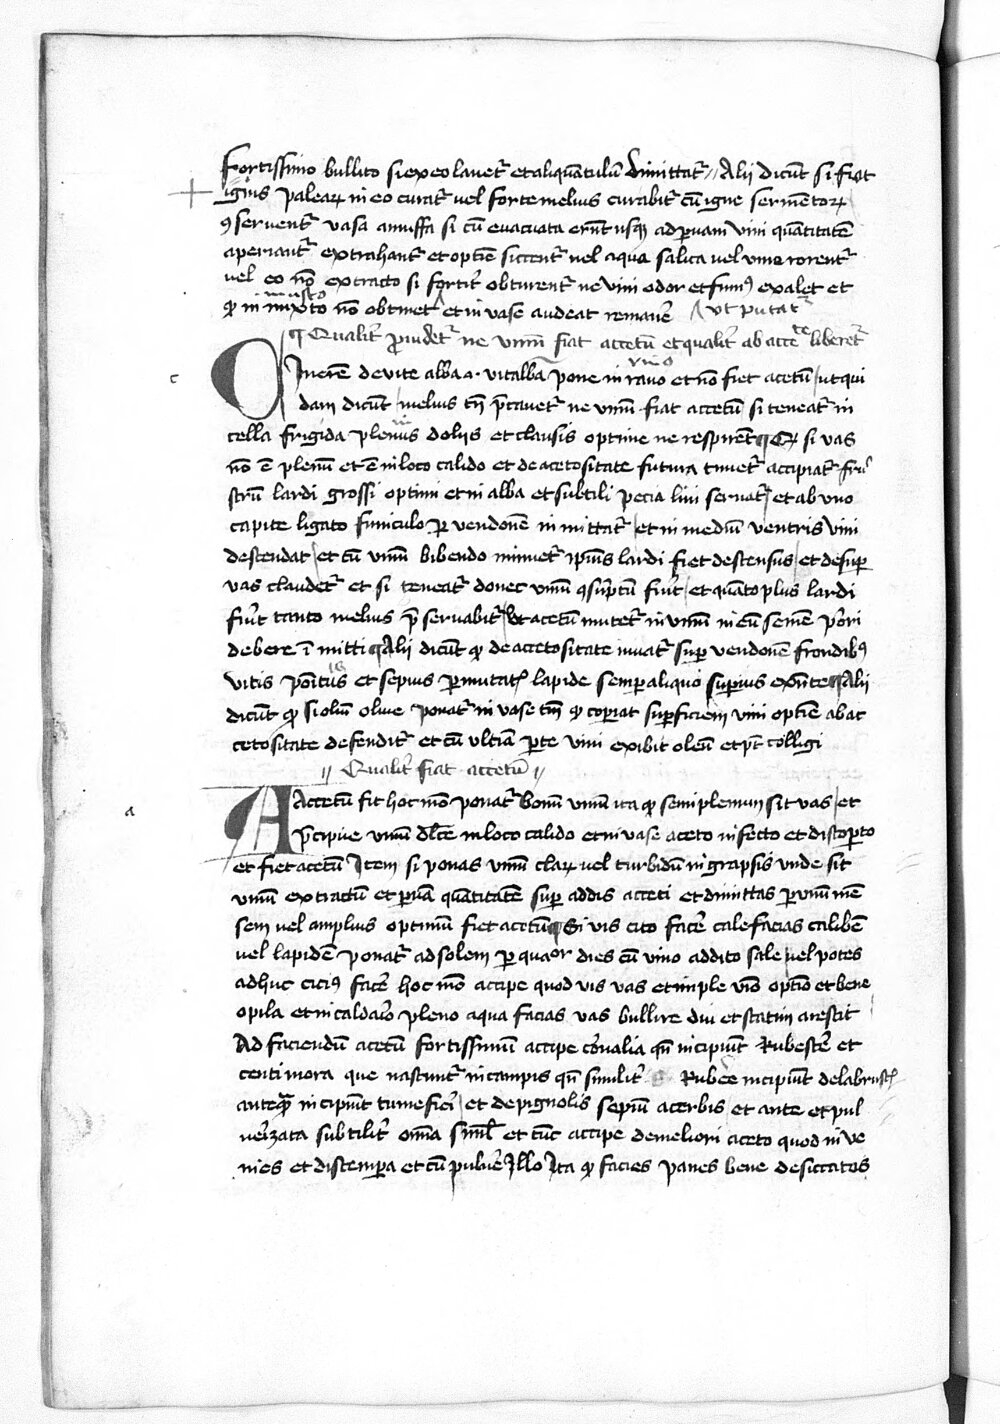 fortissimo bullito si ex eo lavet᷑ et aliqua̅tulu̅ dimittat᷑ // Alii dicu̅t si fiat
ignis paleaꝝ in eo curat᷑ vel forte melius curabit᷑ cu̅ igne sermentoꝝ
ꝯservent᷑ vasa si cu̅ evacuata eru̅t usqꝫ ad parvam vini qua̅titate̅
aperiant᷑ extrahant᷑ et optie̅ siccent᷑ vel aqua salita vel vino rorent᷑
vel eo no̅ extracto si fortit᷑ obturent᷑ ne vini odor et fumꝰ exalet et
ꝙ in musto no̅ obtinet et in vase audeat remane᷑ ut putat᷑
¶ Qualit᷑ p̱videt᷑ ne vinu̅ fiat accetu̅ et qualit᷑ ab accetate liberet᷑
Cinere̅ de vite alba .a. vitalba pone in vino et no̅ fiet acetu̅ / ut qui
dam dicu̅t / melius tn̅ p̅cavet᷑ ne vinu̅ fiat accetu̅ si teneat᷑ in
cella frigida plenis doliis et clausis optime ne respire̅t ¶ Et si vas
no̅ e̅ plenu̅ et e̅ in loco calido et de acetositate futura timet᷑ accipiat᷑ fru
stru̅ lardi grossi optimi et in alba et subtili pecia lini servat᷑ / et ab uno
capite ligato funiculo ꝑ vendone̅ inmittat᷑ / et in mediu̅ ventris vini
descendat / et cu̅ vinu̅ bibendo minuet᷑ ipsius lardi fiet descensus / et desuꝑ
vas claudet᷑ et si teneat᷑ donec vinu̅ ꝯsu̅ptu̅ fiu᷑it / et qua̅to plus lardi
fiu᷑it tanto melius p̅servabit᷑ / ut acetu̅ mutet᷑ in vinu̅ in eu̅ seme̅ pori
debere i̅mitti ¶ Alii dicu̅t ꝙ de acetositate iuvat᷑ suꝑ vendone̅ frondibꝰ
vitis positis et sepius ꝑmutat᷑ lapide semper aliquo superius exn̅te ¶ Alii
dicu̅t ꝙ si oliu̅ olive ponat᷑ in vase tm̅ ꝙ coꝑiat suꝑficiem vini optie̅ ab ac
cetositate defendit᷑ et cu̅ ultia̅ ꝑte vini exibit oleu̅ et pt̅ colligi
// Qualit᷑ fiat accetu̅ //
Accetu̅ fit hoc mo̅ ponat᷑ bonu̅ vinu̅ ita ꝙ semiplenum sit vas / et
p̅cipue vinu̅ dulce in loco calido et in vase aceto infecto et discoꝑto
et fiet acetu̅ Item si ponas vinu̅ claꝝ vel turbidu̅ in grapsis unde sit
vinu̅ extractu̅ et parva̅ qua̅titate̅ suꝑ addis acceti et dimittas ꝑ unu̅ me̅
sem vel amplius optimu̅ fiet acetu̅ ¶ Si vis cito face᷑ calefacias calibe̅
vel lapide̅ ponat᷑ ad solem ꝑ quaor dies cu̅ vino addito sale / vel potes
adhuc citiꝰ face᷑ hoc mo̅ accipe quod vis vas et imple vino optio̅ et bene
opila et in caldario pleno aqua facias vas bullire diu et statim arescit
Ad faciendu̅ acetu̅ fortissimu̅ accipe cornalia qn̅ incipiu̅t rubesce᷑ et
centi mora que nascunt᷑ in campis qn̅ similit᷑ rubee incipiu̅t de labrusc
anteqꝫ incipiu̅t tumefieri / et de pignolis sepiu̅ acerbis / et ante et pul
verizata subtilit᷑ omnia simul et tu̅c accipe de meliori aceto quod inve
nies et distempera et cu̅ pulvere illo ita ꝙ facies panes bene desiccatos
c
a